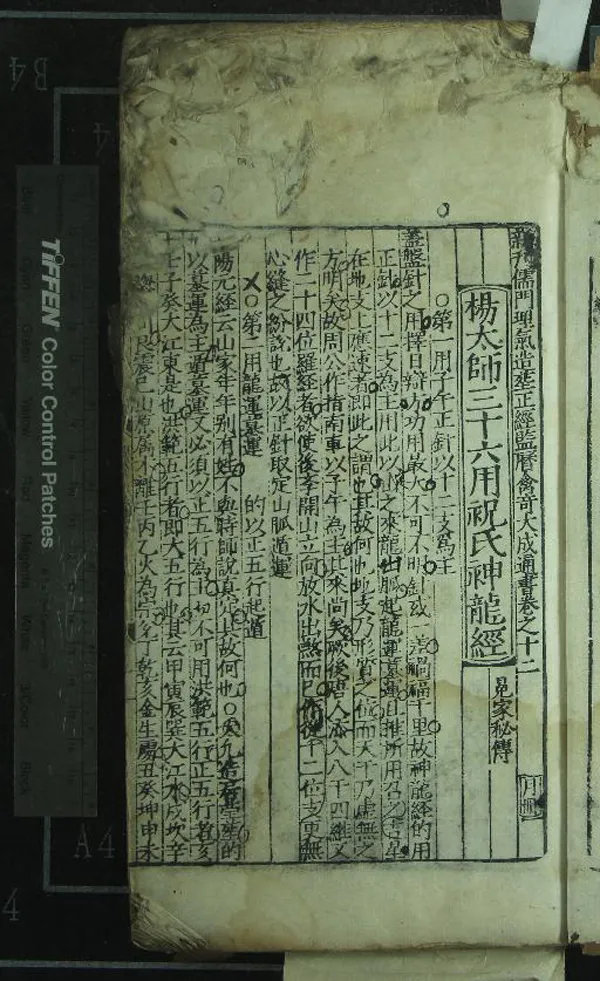 新刊儒門理氣造葬正經監曆禽奇大成通書卷之十二
楊太師三十六用祝氏神龍經
晁家秘傳
月
○第一用子午正針以十二支爲主
盖盤針之用擇日辯方功用最大不可不明針或一差禍福千里故神龍經的用
正針以十二支爲主用此以之來龍出脈起龍運墓運且推所用召之吉星
在地支上應速者即此之謂也其故何也地支乃形質之位而天干乃虛無之
方明矣故周公作指南車以子午為主其來尚矣歟後唐人添入八干四維又
作二十四位羅經者欲使後学開山立向放水出煞而已作後十二位支更無
心縫之紛說也故以正針取定山脈道運
○第二用龍運墓運 的以正五行起遁
陽元經云山家年年别有姓不與時師說真定其故何也○㷊九造葬的
以墓運為主遁墓運又必須以正五行為主切不可用洪範五行正五行者亥
壬子癸大江東是也洪範五行者即大五行也其云甲寅辰巽大江水戌坎辛
艮震巳山原屬木離壬丙乙火為宗兌丁乾亥金生處丑癸坤申未
TIFFEN Color Control Patches
B4
A4
4
4